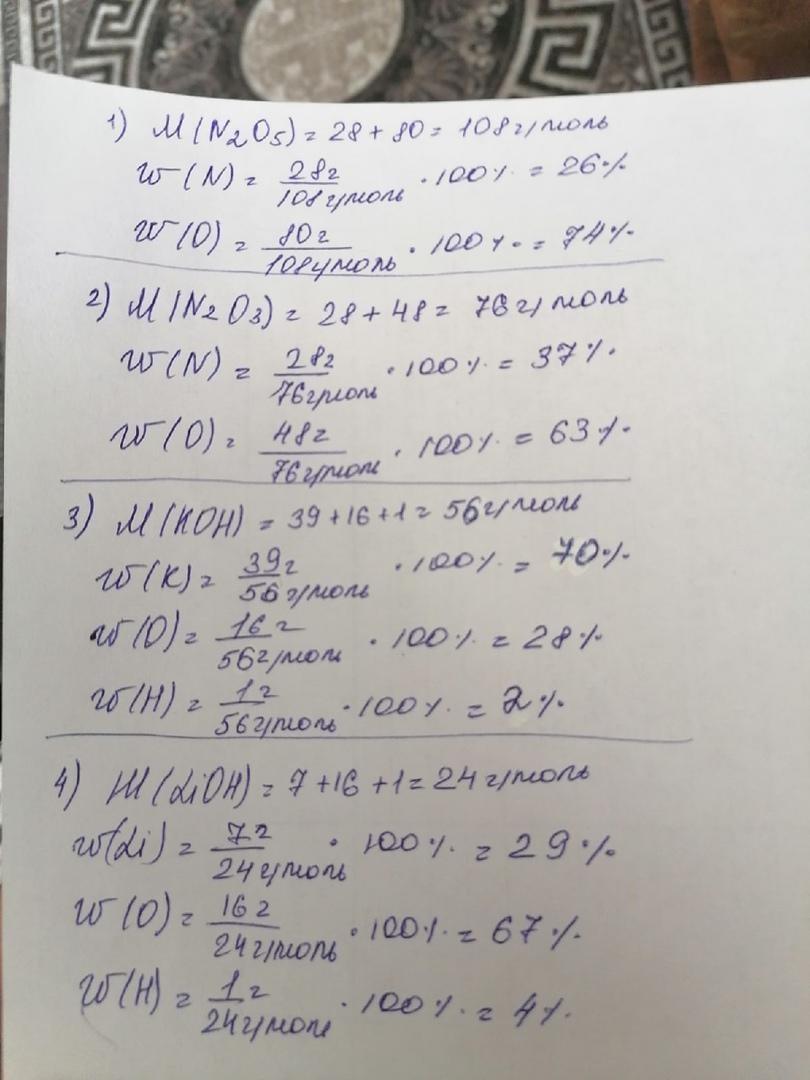 1) M(N2O5) = 28 + 80 = 108 г/моль
w(N) = 28г/108 г/моль · 100% = 26%
w(O) = 80г/108г/моль · 100% = 74%
2) M(N2O3) = 28 + 48 = 76 г/моль
w(N) = 28г/76г/моль · 100% = 37%
w(O) = 48г/76г/моль · 100% = 63%
3) M(KOH) = 39 + 16 + 1 = 56 г/моль
w(K) = 39г/56 г/моль · 100% = 70%
w(O) = 16г/56г/моль · 100% = 28%
w(H) = 1г/56г/моль · 100% = 2%
4) M(LiOH) = 7 + 16 + 1 = 24 г/моль
w(Li) = 7г/24г/моль · 100% = 29%
w(O) = 16г/24г/моль · 100% = 67%
w(H) = 1г/24г/моль · 100% = 4%